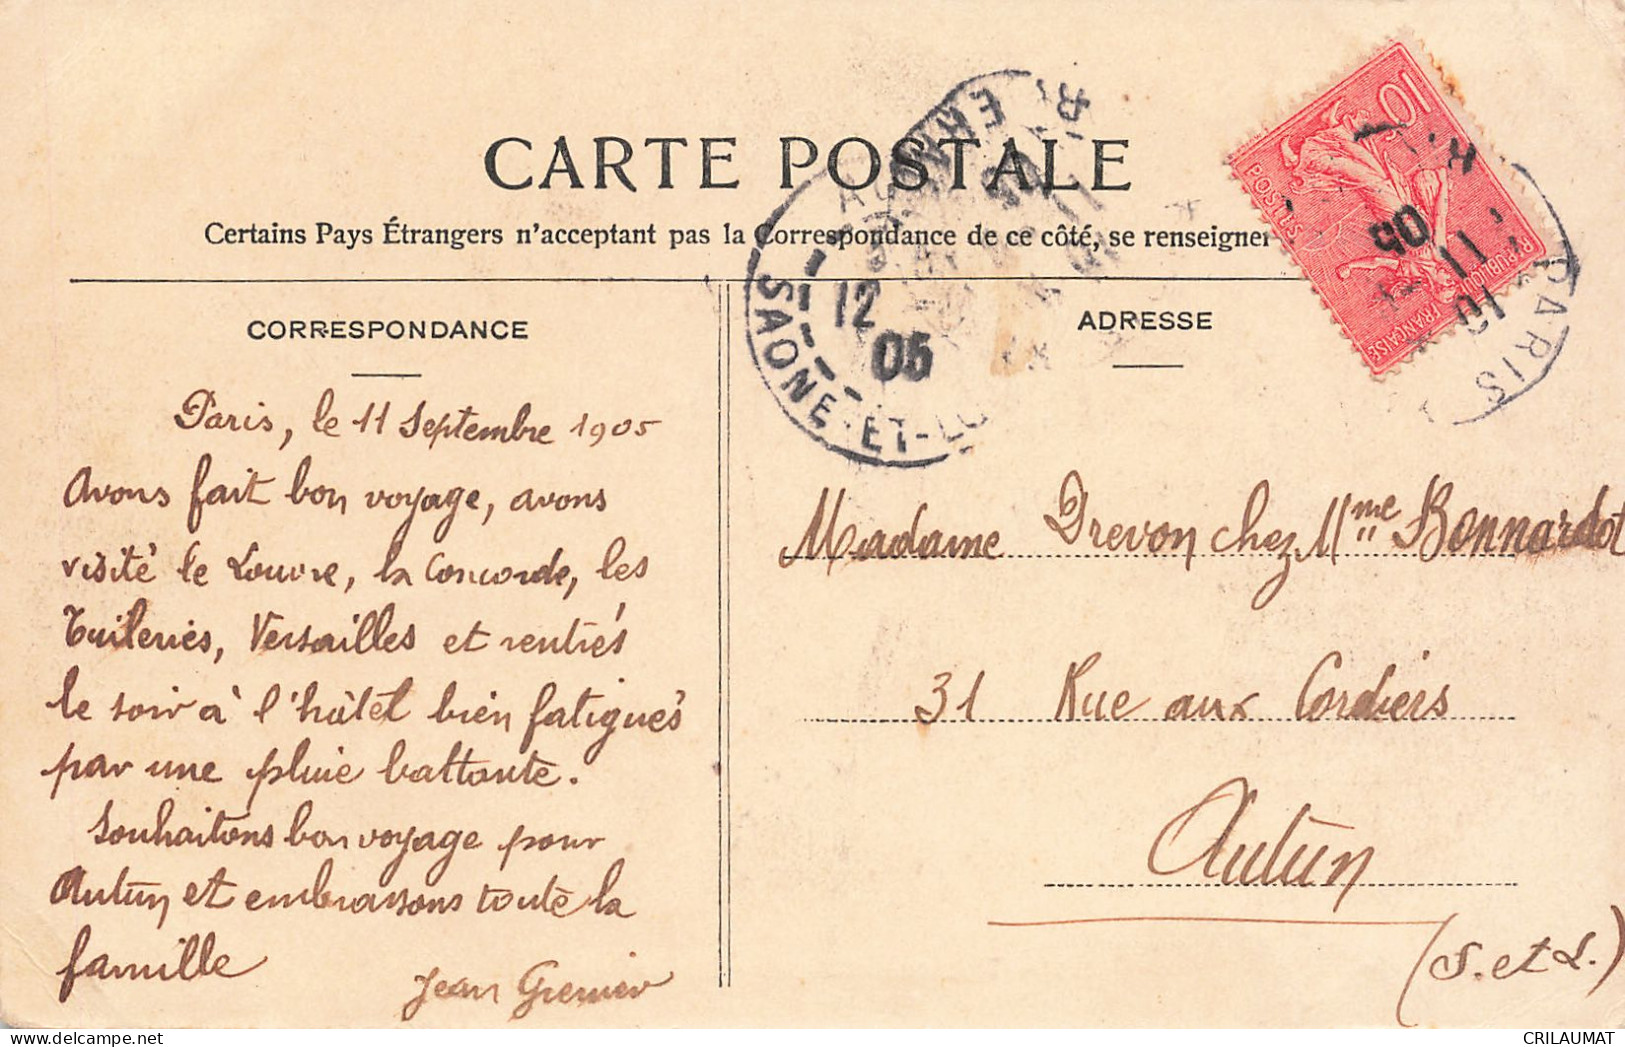 CARTE POSTALE
Certains Pays Étrangers n'acceptant pas la Correspondance de ce côté, se renseigner
CORRESPONDANCE
Paris, le 11 Septembre 1905
Avons fait bon voyage, avons
visité le Louvre, la Concorde, les
Tuileries, Versailles et rentrés
le soir à l'hôtel bien fatigués
par une pluie battante.
Souhaitons bon voyage pour
Autun et embrassons toute la
famille
Jean Grenier
ADRESSE
Madame Drevon chez Mme Bonnardot
31 Rue aux Cordiers
Autun
(S. et L.)
10
POSTES
REPUBLIQUE
FRANÇAISE
PARIS
11
05
12
05
SAONE-ET-LO
CRILAUMAT